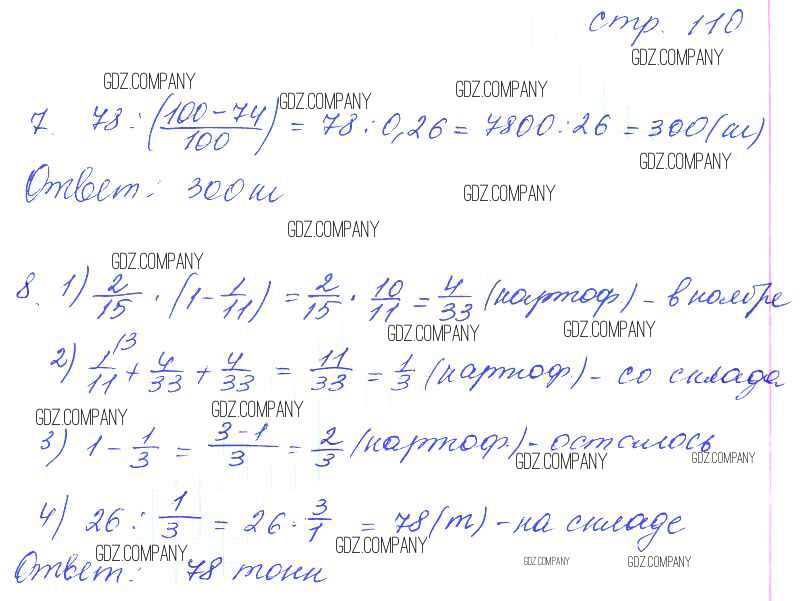 стр. 110
GDZ.COMPANY
GDZ.COMPANY GDZ.COMPANY GDZ.COMPANY
7. 78 : (100-74/100) = 78 : 0,26 = 7800 : 26 = 300 (м)
GDZ.COMPANY
Ответ: 300 м
GDZ.COMPANY
GDZ.COMPANY
GDZ.COMPANY
8. 1) 2/15 · (1 - 1/11) = 2/15 · 10/11 = 4/33 (картоф.) - в ноябре
GDZ.COMPANY GDZ.COMPANY
2) 1/11 \3 + 4/33 + 4/33 = 11/33 = 1/3 (картоф.) - со склада
GDZ.COMPANY GDZ.COMPANY
3) 1 - 1/3 = 3-1/3 = 2/3 (картоф.) - осталось
GDZ.COMPANY GDZ.COMPANY
4) 26 : 1/3 = 26 · 3/1 = 78 (т) - на складе
GDZ.COMPANY GDZ.COMPANY
Ответ: 78 тонн
GDZ.COMPANY GDZ.COMPANY